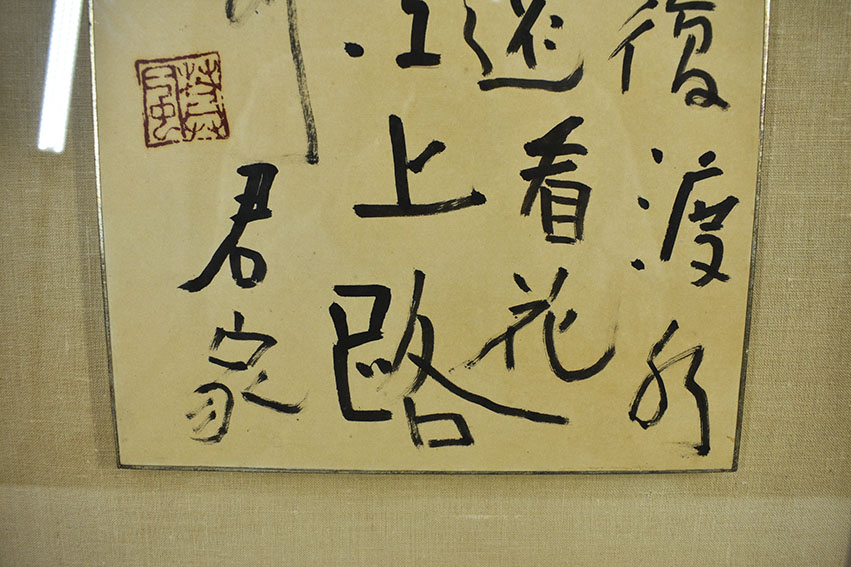 復渡水
還看花
江上路
君家